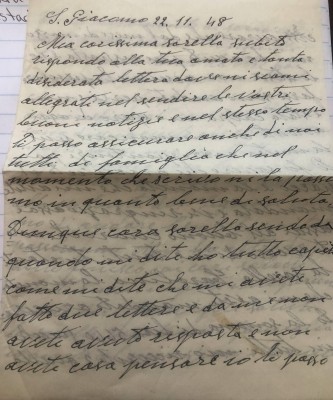 S. Giacomo 22. 11. 48
Mia carissima sorella subito
rispondo alla tua amata e tanta
disiderata lettera dove ni siamo
allegrati nel sendire le vostri
buoni notizie e nel stesso tempo
ti posso assicurare anche di noi
tutti di famiglia che nel
momento che scrivo mi la passia
mo in quanto bene di saluta,
Dunque cara sorella sende da
quando mi dite ho tutto capito
come mi dite che mi avete
fatto due lettere e da me non
avete avuto risposta e non
avete cosa pensare io ti posso